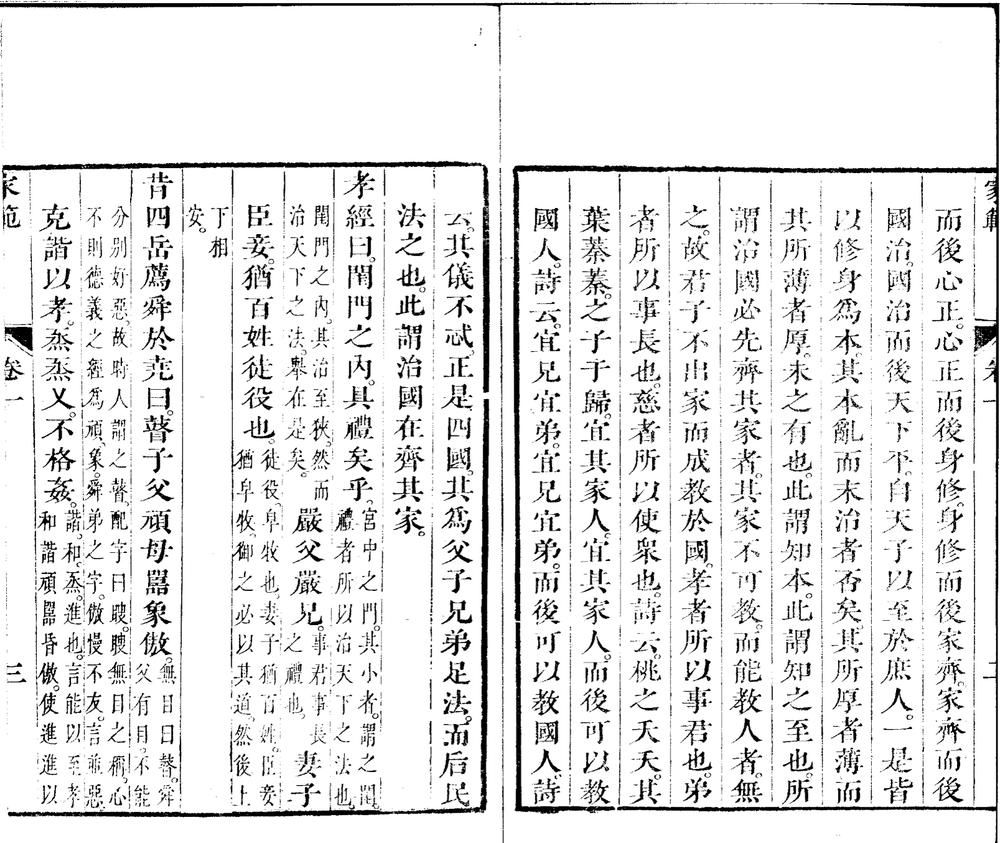 家範 卷一 二
而後心正。心正而後身修。身修而後家齊。家齊而後
國治。國治而後天下平。自天子以至於庶人。一是皆
以修身爲本。其本亂而末治者否矣。其所厚者薄。而
其所薄者厚。未之有也。此謂知本。此謂知之至也。所
謂治國必先齊其家者。其家不可教。而能教人者。無
之。故君子不出家而成教於國。孝者所以事君也。弟
者所以事長也。慈者所以使衆也。詩云。桃之夭夭。其
葉蓁蓁。之子于歸。宜其家人。宜其家人。而後可以教
國人。詩云。宜兄宜弟。宜兄宜弟。而後可以教國人。詩
云。其儀不忒。正是四國。其爲父子兄弟足法。而后民
法之也。此謂治國在齊其家。
孝經曰。閨門之內。具禮矣乎。宮中之門。其小者。謂之閨。禮者所以治天下之法也。
閨門之內。其治至狹。然而治天下之法。舉在是矣。嚴父嚴兄。事君事長之禮也。妻子
臣妾。猶百姓徒役也。徒役。皁牧也。妻子猶百姓。臣妾猶皁牧。御之必以其道。然後上
下相安。
昔四岳薦舜於堯曰。瞽子父頑母嚚象傲。無目曰瞽。舜父有目。不能
分別好惡。故時人謂之瞽。配字曰瞍。瞍無目之稱。心不則德義之經爲頑。象。舜弟之字。傲慢不友。言並惡。
克諧以孝。烝烝乂。不格姦。諧。和。烝。進也。言能以至孝和諧頑嚚昏傲。使進進以
家範 卷一 三